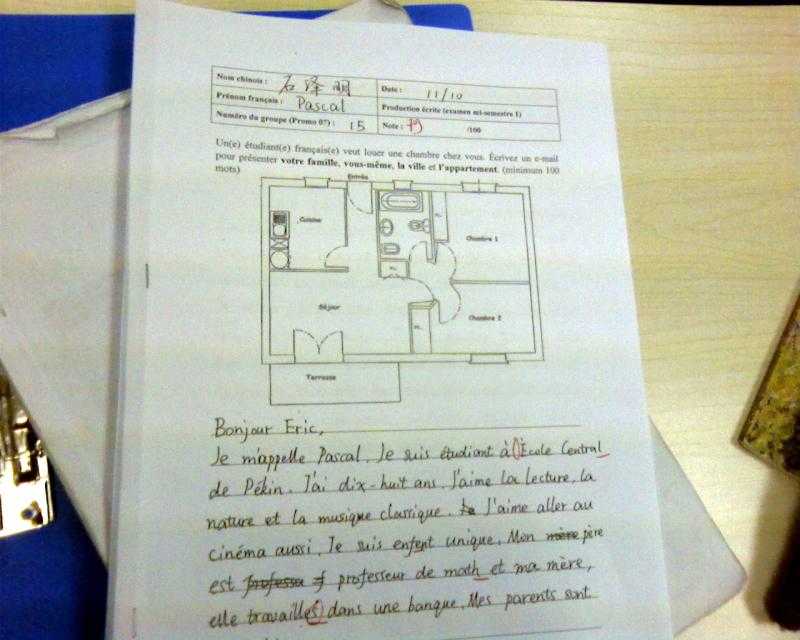 Nom chinois : 石泽明
Date : 11/10
Prénom français : Pascal
Production écrite (examen mi-semestre 1)
Numéro du groupe (Promo 07) : 15
Note : /100
Un(e) étudiant(e) français(e) veut louer une chambre chez vous. Écrivez un e-mail
pour présenter votre famille, vous-même, la ville et l'appartement. (minimum 100
mots)
Entrée
Cuisine
Chambre 1
Séjour
Chambre 2
Terrasse
Bonjour Eric,
Je m'appelle Pascal. Je suis étudiant à l'École Central
de Pékin. J'ai dix-huit ans. J'aime la lecture, la
nature et la musique classique. J'aime aller au
cinéma aussi. Je suis enfent unique. Mon mère père
est professeur de math et ma mère,
elle travailles dans une banque. Mes parents sont